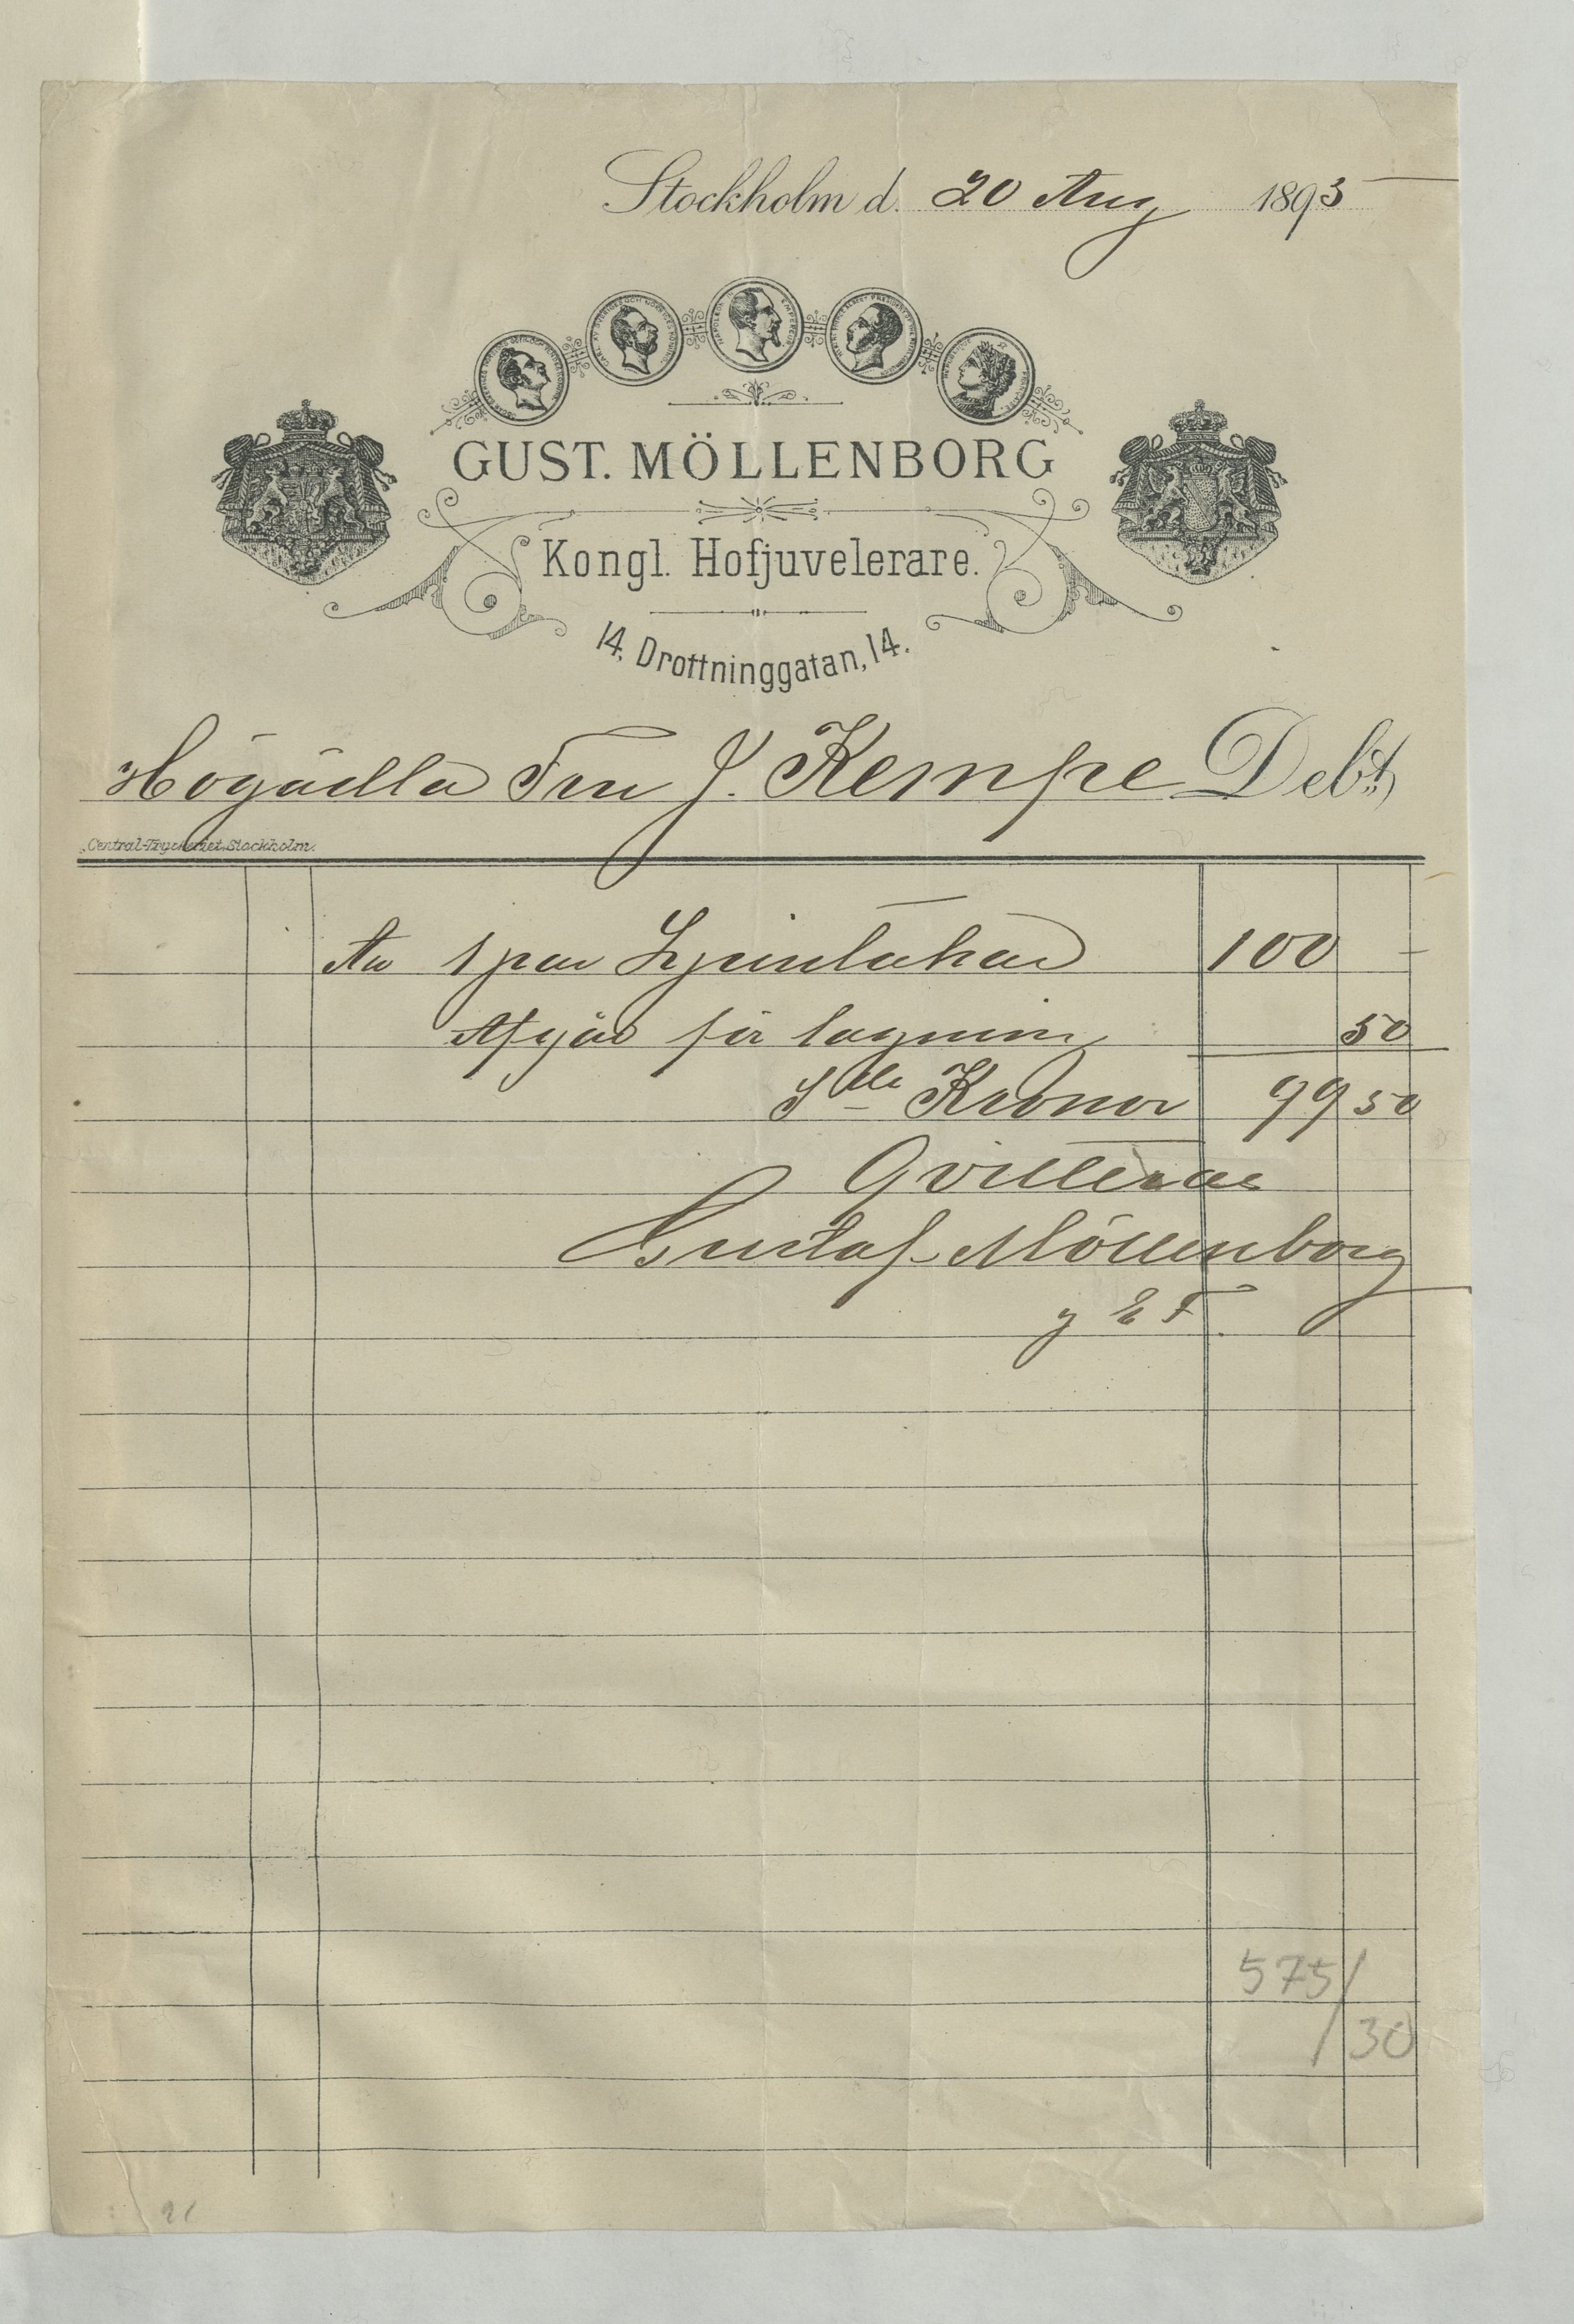 Stockholm d. 20 Aug 1893
GUST. MÖLLENBORG
Kongl. Hofjuvelerare.
14, Drottninggatan, 14.
Högädla Fru J. Kempe Debt.
Central-Tryckeriet, Stockholm.
An 1 par Ljusstakar 100 -
Afgår för lagning 50
S:lla Kronor 99 50
Qvitteras
Gustaf Möllenborg
g E F.
575/
/30